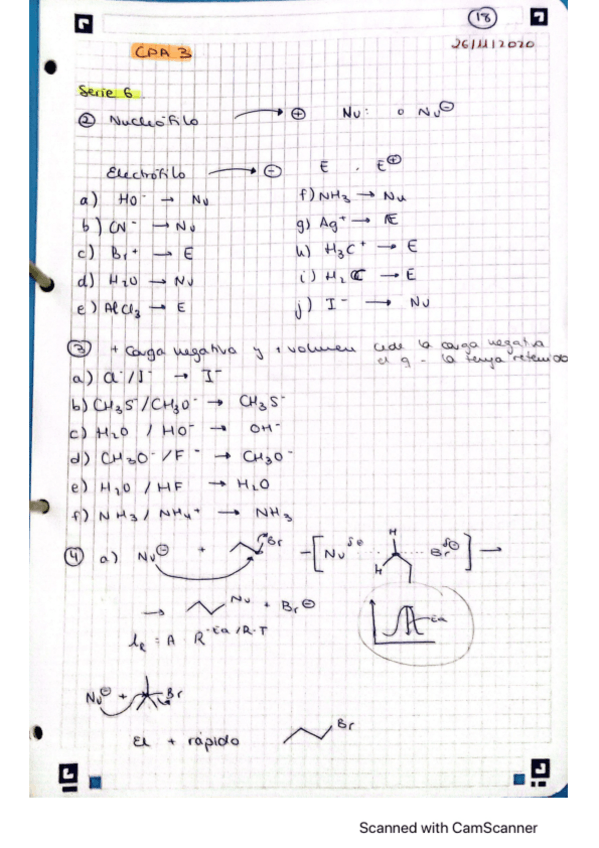 18
CPA 3
26/11/2020
Serie 6
② Nucleófilo → ⊕ Nu: o Nu⊖
Electrófilo → ⊖ E . E⊕
a) HO⁻ → Nu
f) NH₃ → Nu
b) CN⁻ → Nu
g) Ag⁺ → E
c) Br⁺ → E
h) H₃C⁺ → E
d) H₂O → Nu
i) H₂C → E
e) AlCl₃ → E
j) I⁻ → Nu
③ + carga negativa y + volumen cede la carga negativa
el q - la tenga retenida
a) Cl⁻/I⁻ → I⁻
b) CH₃S⁻/CH₃O⁻ → CH₃S⁻
c) H₂O / HO⁻ → OH⁻
d) CH₃O⁻/F⁻ → CH₃O⁻
e) H₂O / HF → H₂O
f) NH₃ / NH₄⁺ → NH₃
④ a) Nu⊖ + Br → [Nu δ⊖ H H Br δ⊖] →
→ Nu + Br⊖
Ea
= A · R^-Ea/R·T
Nu⊖ + Br
El + rápido Br
Scanned with CamScanner